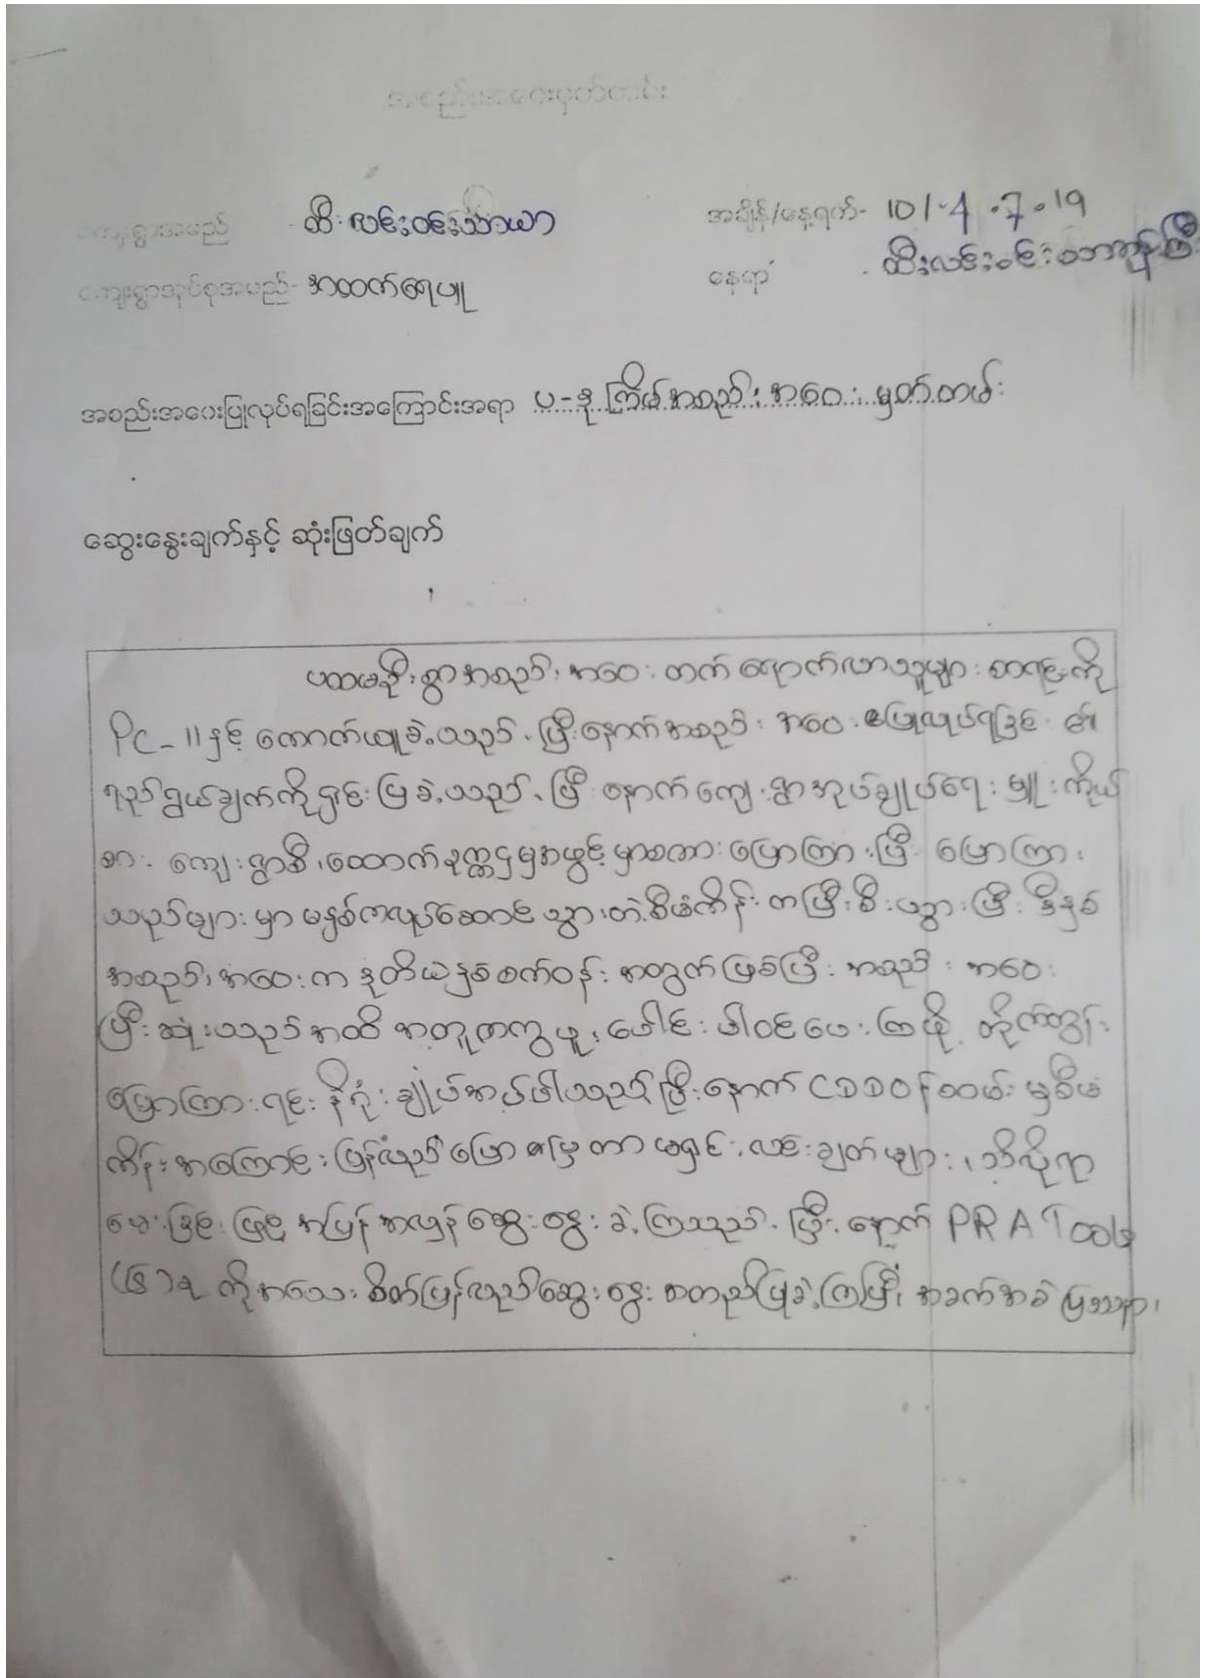 အစည်းအဝေးမှတ်တမ်း
ကျေးရွာအမည် - ထီးလင်းဝင်းသာယာ အချိန်/နေ့ရက်- 10/-4.7.19
ကျေးရွာအုပ်စုအမည်- အထက်ရေပျူ နေရာ - ထီးလင်းဝင်းဘော
အစည်းအဝေးပြုလုပ်ရခြင်းအကြောင်းအရာ ပ-ဒုကြိမ်အစည်းအဝေးမှတ်တမ်း
ဆွေးနွေးချက်နှင့် ဆုံးဖြတ်ချက်
ပထမဦးစွာအစည်းအဝေးတက်ရောက်လာသူများစာရင်းကို
PC-11နှင့် ကောက်ယူခဲ့သည်.ပြီးနောက်အစည်းအဝေးပြုလုပ်ရခြင်း၏
ရည်ရွယ်ချက်ကိုရှင်းပြခဲ့သည်.ပြီးနောက်ကျေးရွာအုပ်ချုပ်ရေးမှူးကိုယ်
စား ကျေးရွာစီ/ထောက်ဥက္ကဌမှအဖွင့်မှာစကားပြောကြားပြီး ပြောကြား
သည်များမှာ မနှစ်ကလုပ်ဆောင်သွားတဲ့စီမံကိန်းကပြီးစီးသွားပြီး ဒီနှစ်
အစည်းအဝေးကဒုတိယနှစ်စက်ဝန်းအတွက်ဖြစ်ပြီး အစည်းအဝေး
ပြီးဆုံးသည်အထိ အတူတကွပူးပေါင်းပါဝင်ပေးကြဖို့ တိုက်တွန်း
ပြောကြားရင်းနိဂုံးချုပ်အပ်ပါသည်ပြီးနောက် CDDဝန်ထမ်းမှစီမံ
ကိန်းအကြောင်းပြန်လည်ပြောပြကာ မရှင်းလင်းချက်များ၊ သိလိုရာ
မေးခြင်းဖြင့်အပြန်အလှန်ဆွေးနွေးခဲ့ကြသည်.ပြီးနောက် PRA Tools
(၆)ခု ကိုအသေးစိတ်ပြန်လည်ဆွေးနွေးအတည်ပြုခဲ့ကြပြီး၊ အခက်အခဲပြဿနာ၊